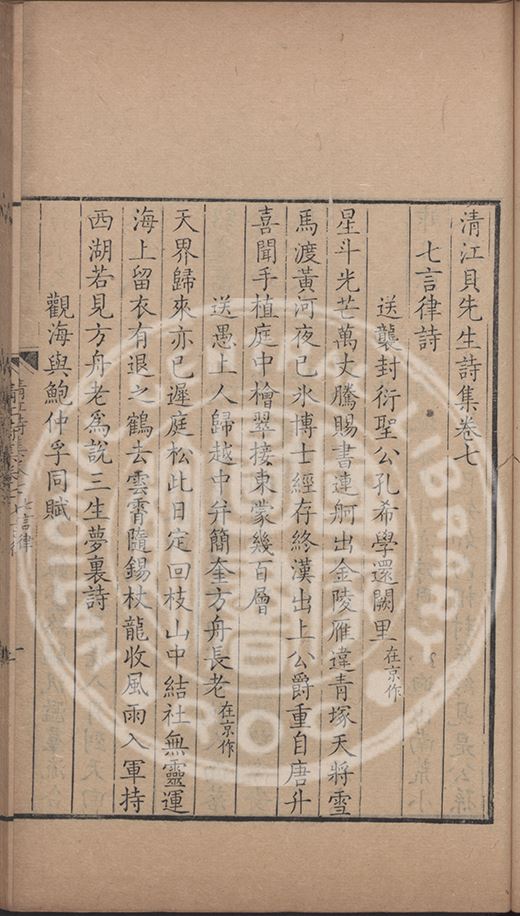 清江貝先生詩集卷七
七言律詩
送襲封衍聖公孔希學還闕里在京作
星斗光芒萬丈騰賜書連舸出金陵雁違青塚天將雪
馬渡黃河夜已氷博士經存終漢出上公爵重自唐升
喜聞手植庭中檜翠接東蒙幾百層
送愚上人歸越中并簡奎方舟長老在京作
天界歸來亦已遲庭松此日定回枝山中結社無靈運
海上留衣有退之鶴去雲霄隨錫杖龍收風雨入軍持
西湖若見方舟老爲說三生夢裏詩
觀海與鮑仲孚同賦
七言律